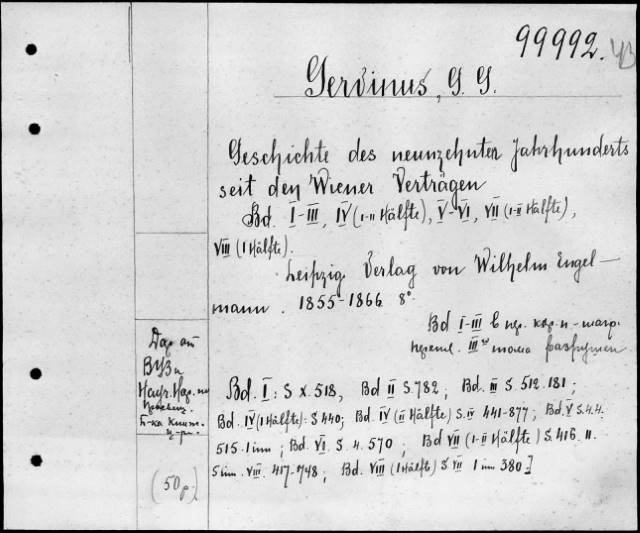 99992.
Gervinus, G. G.
Geschichte des neunzehnten Jahrhunderts
seit den Wiener Verträgen
Bd. I-III, IV (I-II Hälfte), V-VI, VII (I-II Hälfte),
VIII (I Hälfte).
Leipzig Verlag von Wilhelm Engel-
mann. 1855-1866 8°
Bd I-III в пр. кор. п.
III тома
Bd. I: S X. 518, Bd II S. 782; Bd. III S. 512. 181;
Bd. IV (I Hälfte): S 440; Bd. IV (II Hälfte) S. II 441-877; Bd. V S. 4.4.
515. 1 им; Bd. VI S. 4. 570; Bd VII (I-II Hälfte) S. 416. II.
VIII. 417-748; Bd. VIII (I Hälfte) S VII 1 им 380.]
Дар от
(50р.)